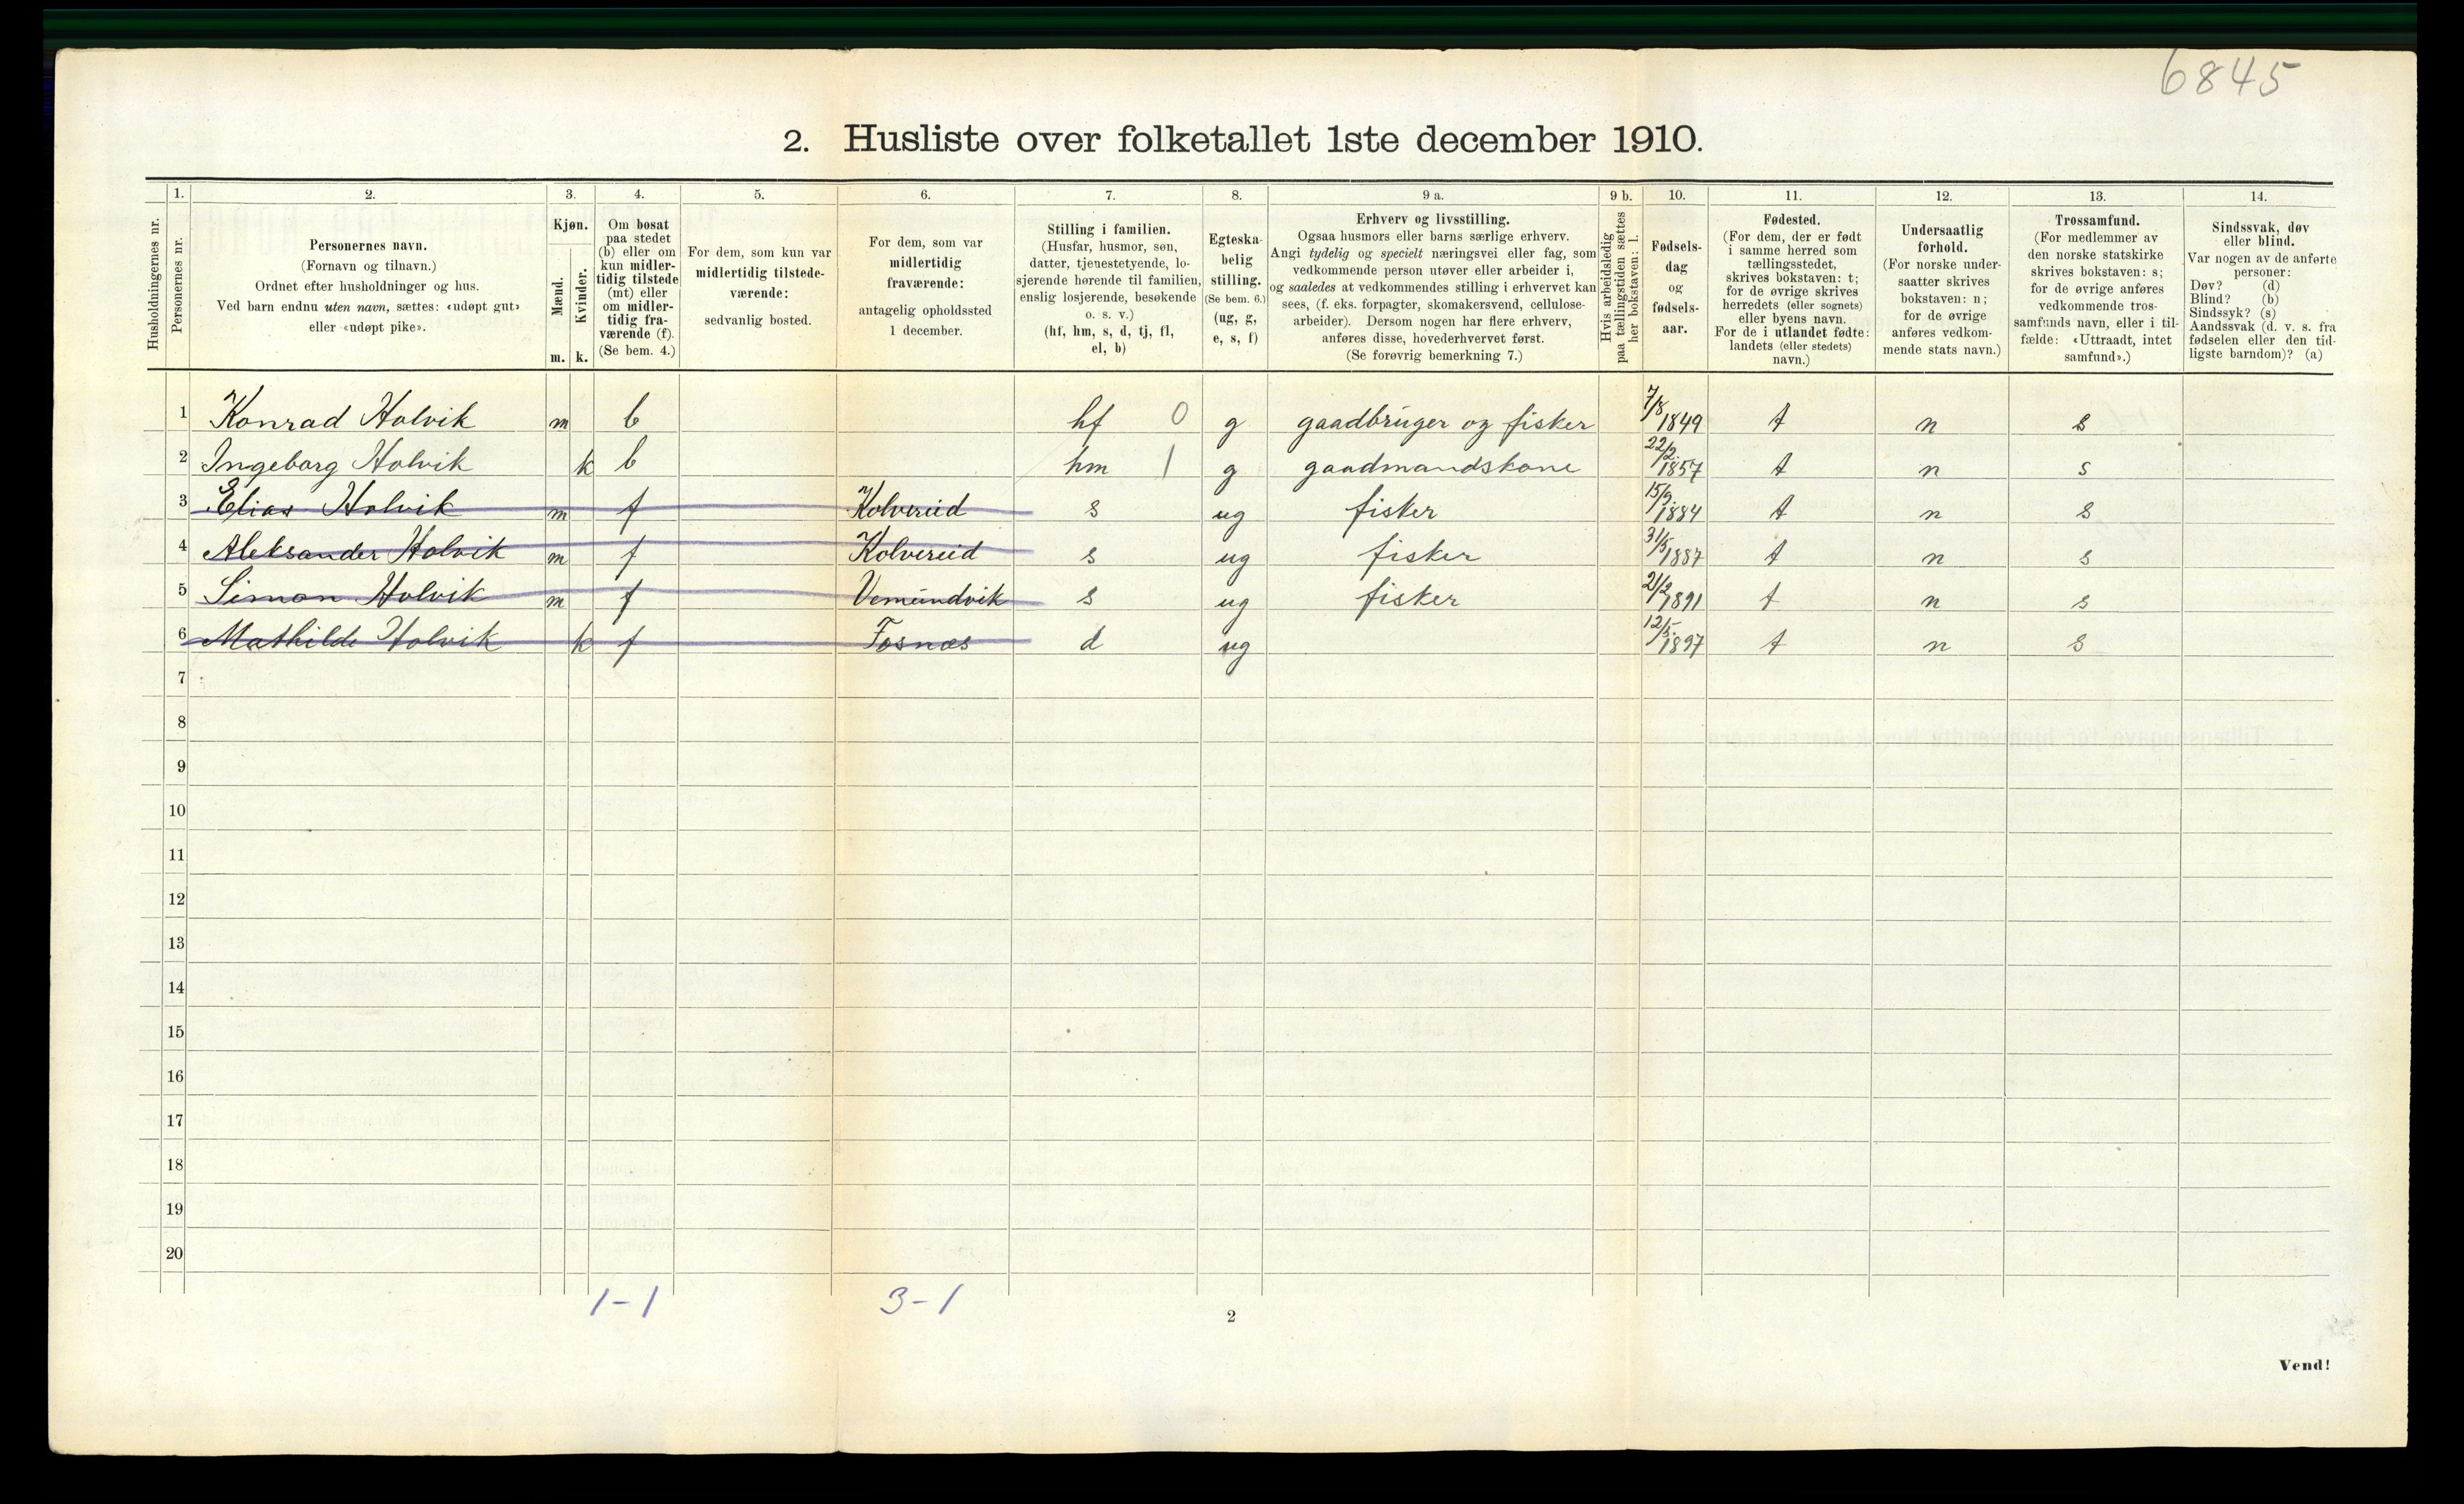 6845
2. Husliste over folketallet 1ste december 1910.
1. 2. 3. 4. 5. 6. 7. 8. 9 a. 9 b. 10. 11. 12. 13. 14.
Husholdningernes nr.
Personernes nr.
Personernes navn.
(Fornavn og tilnavn.)
Ordnet efter husholdninger og hus.
Ved barn endnu uten navn, sættes: «udøpt gut»
eller «udøpt pike».
Kjøn.
Mænd.
Kvinder.
m. k.
Om bosat
paa stedet
(b) eller om
kun midler-
tidig tilstede
(mt) eller
om midler-
tidig fra-
værende (f).
(Se bem. 4.)
For dem, som kun var
midlertidig tilstede-
værende:
sedvanlig bosted.
For dem, som var
midlertidig
fraværende:
antagelig opholdssted
1 december.
Stilling i familien.
(Husfar, husmor, søn,
datter, tjenestetyende, lo-
sjerende hørende til familien,
enslig losjerende, besøkende
o. s. v.)
(hf, hm, s, d, tj, fl,
el, b)
Egteska-
belig
stilling.
(Se bem. 6.)
(ug, g,
e, s, f)
Erhverv og livsstilling.
Ogsaa husmors eller barns særlige erhverv.
Angi tydelig og specielt næringsvei eller fag, som
vedkommende person utøver eller arbeider i,
og saaledes at vedkommendes stilling i erhvervet kan
sees, (f. eks. forpagter, skomakersvend, cellulose-
arbeider). Dersom nogen har flere erhverv,
anføres disse, hovederhvervet først.
(Se forøvrig bemerkning 7.)
Hvis arbeidsledig
paa tællingstiden sættes
her bokstaven: l.
Fødsels-
dag
og
fødsels-
aar.
Fødested.
(For dem, der er født
i samme herred som
tællingsstedet,
skrives bokstaven: t;
for de øvrige skrives
herredets (eller sognets)
eller byens navn.
For de i utlandet fødte:
landets (eller stedets)
navn.)
Undersaatlig
forhold.
(For norske under-
saatter skrives
bokstaven: n;
for de øvrige
anføres vedkom-
mende stats navn.)
Trossamfund.
(For medlemmer av
den norske statskirke
skrives bokstaven: s;
for de øvrige anføres
vedkommende tros-
samfunds navn, eller i til-
fælde: «Uttraadt, intet
samfund».)
Sindssvak, døv
eller blind.
Var nogen av de anførte
personer:
Døv? (d)
Blind? (b)
Sindssyk? (s)
Aandssvak (d. v. s. fra
fødselen eller den tid-
ligste barndom)? (a)
1 Konrad Holvik m b hf 0 g gaadbruger og fisker 7/8 1849 t n s
2 Ingeborg Holvik k b hm 1 g gaadmandskone 22/2 1857 t n s
3 Elias Holvik m f Kolvereid s ug fisker 15/9 1884 t n s
4 Aleksander Holvik m f Kolvereid s ug fisker 31/5 1887 t n s
5 Simon Holvik m f Vemundvik s ug fisker 21/2 1891 t n s
6 Mathilde Holvik k f Fosnæs d ug 12/5 1897 t n s
7
8
9
10
11
12
13
14
15
16
17
18
19
20
1-1 3-1
2
Vend!